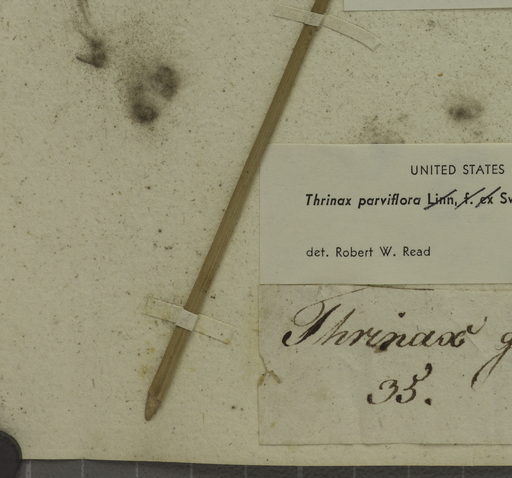 UNITED STATES
Thrinax parviflora Linn, f. ex Sw
det. Robert W. Read
Thrinax g
35.